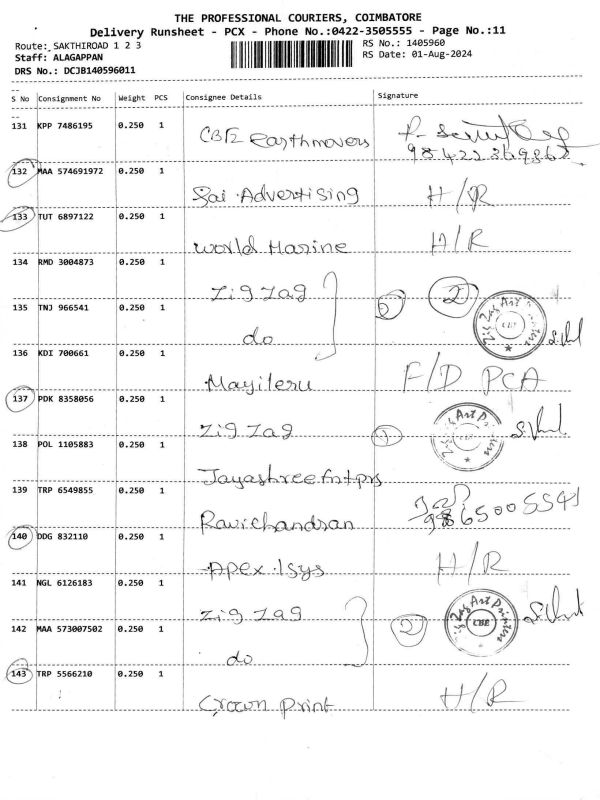 THE PROFESSIONAL COURIERS, COIMBATORE
Delivery Runsheet - PCX - Phone No.:0422-3505555 - Page No.:11
Route: SAKTHIROAD 1 2 3
RS No.: 1405960
Staff: ALAGAPPAN
RS Date: 01-Aug-2024
DRS No.: DCJB140596011
S No Consignment No Weight PCS Consignee Details Signature
131 KPP 7486195 0.250 1
CBE earthmovers
132 MAA 574691972 0.250 1
Sai Advertising H/R
133 TUT 6897122 0.250 1
World Marine H/R
134 RMD 3004873 0.250 1
Zig Zag 2
135 TNJ 966541 0.250 1
do
Zig Zag Art Printers CBE
136 KDI 700661 0.250 1
Mayileru F/D PCA
137 PDK 8358056 0.250 1
Zig Zag 1
138 POL 1105883 0.250 1
Jayashree Entprs
139 TRP 6549855 0.250 1
Ravichandran
140 DDG 832110 0.250 1
Apex Isys H/R
141 NGL 6126183 0.250 1
Zig Zag
142 MAA 573007502 0.250 1
do 2
Zig Zag Art Printers CBE
143 TRP 5566210 0.250 1
Crown Print H/R